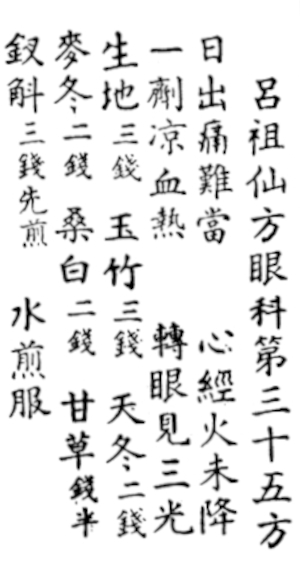 呂祖仙方眼科第三十五方
日出痛難當　心經火未降
一劑凉血熱　轉眼見三光
生地三錢　玉竹三錢　天冬二錢
麥冬二錢　桑白二錢　甘草錢半
釵斛三錢先煎　水煎服